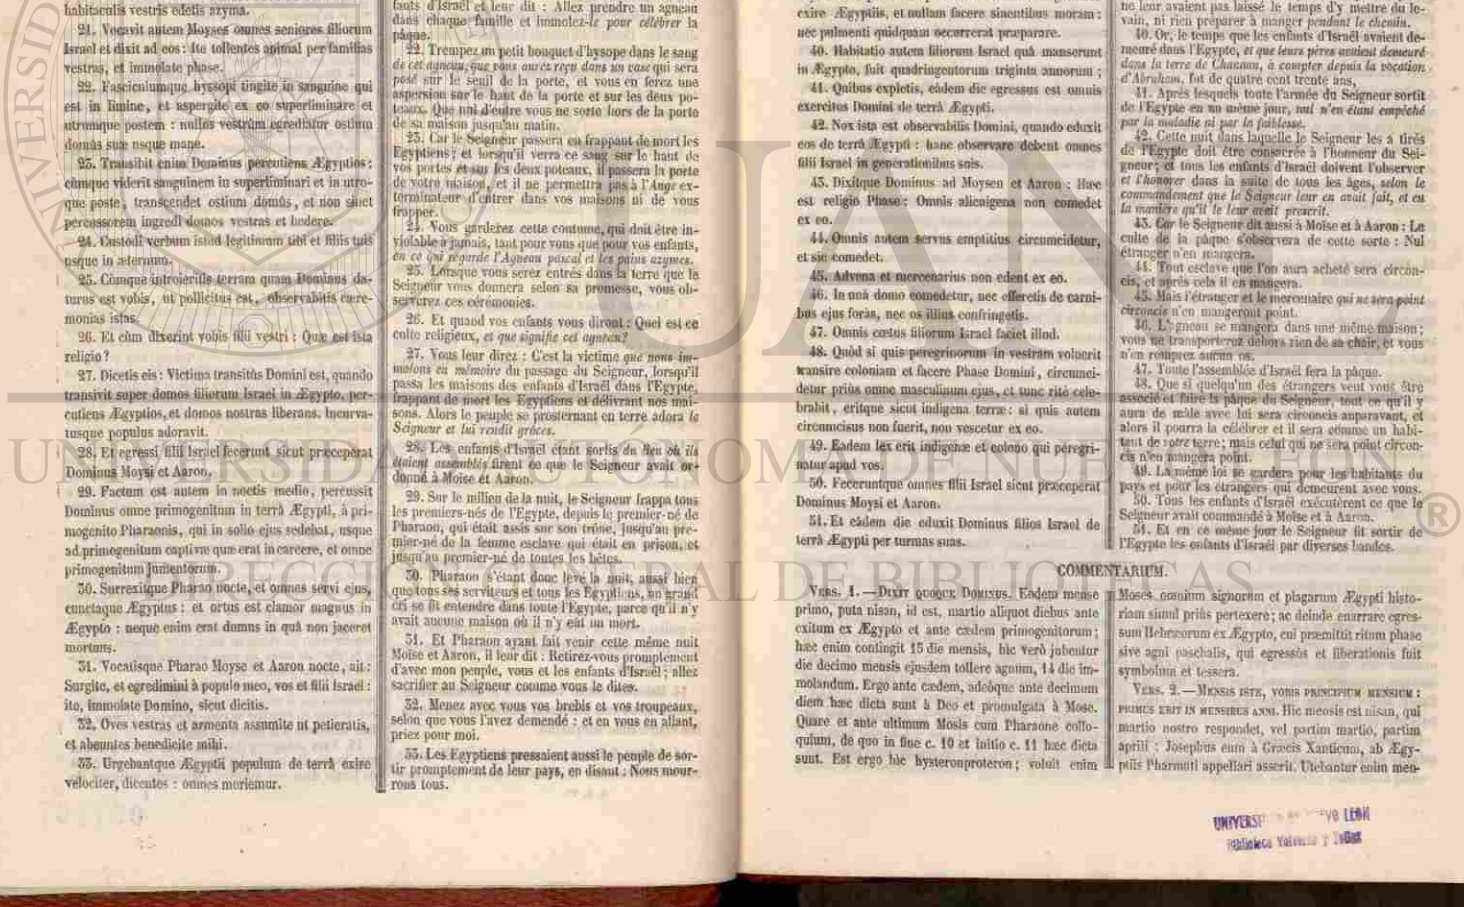 habitaculis vestris edetis azyma.
21. Vocavit autem Moyses omnes seniores filiorum
Israel et dixit ad eos: Ite tollentes animal per familias
vestras, et immolate phase.
22. Fasciculumque hyssopi tingite in sanguine qui
est in limine, et aspergite ex eo superliminare et
utrumque postem : nullus vestrûm egrediatur ostium
domûs suæ usque manè.
23. Transibit enim Dominus percutiens Ægyptios :
cùmque viderit sanguinem in superliminari et in utro-
que poste, transcendet ostium domûs, et non sinet
percussorem ingredi domos vestras et lædere.
24. Custodi verbum istud legitimum tibi et filiis tuis
usque in æternum.
25. Cùmque introieritis terram quam Dominus da-
turus est vobis, ut pollicitus est, observabitis cære-
monias istas.
26. Et cùm dixerint vobis filii vestri : Quæ est ista
religio ?
27. Dicetis eis : Victima transitûs Domini est, quando
transivit super domos filiorum Israel in Ægypto, per-
cutiens Ægyptios, et domos nostras liberans. Incurva-
tusque populus adoravit.
28. Et egressi filii Israel fecerunt sicut præceperat
Dominus Moysi et Aaron.
29. Factum est autem in noctis medio, percussit
Dominus omne primogenitum in terrâ Ægypti, à pri-
mogenito Pharaonis, qui in solio ejus sedebat, usque
ad primogenitum captivæ quæ erat in carcere, et omne
primogenitum jumentorum.
30. Surrexitque Pharao nocte, et omnes servi ejus,
cunctaque Ægyptus : et ortus est clamor magnus in
Ægypto : neque enim erat domus in quâ non jaceret
mortuus.
31. Vocatisque Pharao Moyse et Aaron nocte, ait :
Surgite, et egredimini à populo meo, vos et filii Israel :
ite, immolate Domino, sicut dicitis.
32. Oves vestras et armenta assumite ut petieratis,
et abeuntes benedicite mihi.
33. Urgebantque Ægyptii populum de terrâ exire
velociter, dicentes : omnes moriemur.
fants d'Israël et leur dit : Allez prendre un agneau
dans chaque famille et immolez-le pour célébrer la
pâque.
22. Trempez un petit bouquet d'hysope dans le sang
de cet agneau, que vous aurez reçu dans un vase qui sera
posé sur le seuil de la porte, et vous en ferez une
aspersion sur le haut de la porte et sur les deux po-
teaux. Que nul d'entre vous ne sorte hors de la porte
de sa maison jusqu'au matin.
23. Car le Seigneur passera en frappant de mort les
Egyptiens ; et lorsqu'il verra ce sang sur le haut de
vos portes et sur les deux poteaux, il passera la porte
de votre maison, et il ne permettra pas à l'Ange ex-
terminateur d'entrer dans vos maisons ni de vous
frapper.
24. Vous garderez cette coutume, qui doit être in-
violable à jamais, tant pour vous que pour vos enfants,
en ce qui regarde l'Agneau pascal et les pains azymes.
25. Lorsque vous serez entrés dans la terre que le
Seigneur vous donnera selon sa promesse, vous ob-
serverez ces cérémonies.
26. Et quand vos enfants vous diront : Quel est ce
culte religieux, et que signifie cet agneau?
27. Vous leur direz : C'est la victime que nous im-
molons en mémoire du passage du Seigneur, lorsqu'il
passa les maisons des enfants d'Israël dans l'Egypte,
frappant de mort les Egyptiens et délivrant nos mai-
sons. Alors le peuple se prosternant en terre adora le
Seigneur et lui rendit grâces.
28. Les enfants d'Israël étant sortis du lieu où ils
étaient assemblés firent ce que le Seigneur avait or-
donné à Moïse et Aaron.
29. Sur le milieu de la nuit, le Seigneur frappa tous
les premiers-nés de l'Egypte, depuis le premier-né de
Pharaon, qui était assis sur son trône, jusqu'au pre-
mier-né de la femme esclave qui était en prison, et
jusqu'au premier-né de toutes les bêtes.
30. Pharaon s'étant donc levé la nuit, aussi bien
que tous ses serviteurs et tous les Egyptiens, un grand
cri se fit entendre dans toute l'Egypte, parce qu'il n'y
avait aucune maison où il n'y eût un mort.
31. Et Pharaon ayant fait venir cette même nuit
Moïse et Aaron, il leur dit : Retirez-vous promptement
d'avec mon peuple, vous et les enfants d'Israël ; allez
sacrifier au Seigneur comme vous le dites.
32. Menez avec vous vos brebis et vos troupeaux,
selon que vous l'avez demandé : et en vous en allant,
priez pour moi.
33. Les Egyptiens pressaient aussi le peuple de sor-
tir promptement de leur pays, en disant : Nous mour-
rons tous.
exire Ægyptiis, et nullam facere sinentibus moram :
nec pulmenti quidquam occurrerat præparare.
40. Habitatio autem filiorum Israel quâ manserunt
in Ægypto, fuit quadringentorum triginta annorum ;
41. Quibus expletis, eâdem die egressus est omnis
exercitus Domini de terrâ Ægypti.
42. Nox ista est observabilis Domini, quando eduxit
eos de terrâ Ægypti : hanc observare debent omnes
filii Israel in generationibus suis.
43. Dixitque Dominus ad Moysen et Aaron : Hæc
est religio Phase : Omnis alienigena non comedet
ex eo.
44. Omnis autem servus emptitius circumcidetur,
et sic comedet.
45. Advena et mercenarius non edent ex eo.
46. In unâ domo comedetur, nec efferetis de carni-
bus ejus foràs, nec os illius confringetis.
47. Omnis cœtus filiorum Israel faciet illud.
48. Quòd si quis peregrinorum in vestram voluerit
transire coloniam et facere Phase Domini, circumci-
detur priùs omne masculinum ejus, et tunc ritè cele-
brabit, eritque sicut indigena terræ : si quis autem
circumcisus non fuerit, non vescetur ex eo.
49. Eadem lex erit indigenæ et colono qui peregri-
natur apud vos.
50. Feceruntque omnes filii Israel sicut præceperat
Dominus Moysi et Aaron.
51. Et eâdem die eduxit Dominus filios Israel de
terrâ Ægypti per turmas suas.
ne leur avaient pas laissé le temps d'y mettre du le-
vain, ni rien préparer à manger pendant le chemin.
40. Or, le temps que les enfants d'Israël avaient de-
meuré dans l'Egypte, et que leurs pères avaient demeuré
dans la terre de Chanaan, à compter depuis la vocation
d'Abraham, fut de quatre cent trente ans,
41. Après lesquels toute l'armée du Seigneur sortit
de l'Egypte en un même jour, nul n'en étant empêché
par la maladie ni par la faiblesse.
42. Cette nuit dans laquelle le Seigneur les a tirés
de l'Egypte doit être consacrée à l'honneur du Sei-
gneur ; et tous les enfants d'Israël doivent l'observer
et l'honorer dans la suite de tous les âges, selon le
commandement que le Seigneur leur en avait fait, et en
la manière qu'il le leur avait prescrit.
43. Car le Seigneur dit aussi à Moïse et à Aaron : Le
culte de la pâque s'observera de cette sorte : Nul
étranger n'en mangera.
44. Tout esclave que l'on aura acheté sera circon-
cis, et après cela il en mangera.
45. Mais l'étranger et le mercenaire qui ne sera point
circoncis n'en mangeront point.
46. L'agneau se mangera dans une même maison ;
vous ne transporterez dehors rien de sa chair, et vous
n'en romprez aucun os.
47. Toute l'assemblée d'Israël fera la pâque.
48. Que si quelqu'un des étrangers veut vous être
associé et faire la pâque du Seigneur, tout ce qu'il y
aura de mâle avec lui sera circoncis auparavant, et
alors il pourra la célébrer et il sera comme un habi-
tant de votre terre ; mais celui qui ne sera point circon-
cis n'en mangera point.
49. La même loi se gardera pour les habitants du
pays et pour les étrangers qui demeurent avec vous.
50. Tous les enfants d'Israël exécutèrent ce que le
Seigneur avait commandé à Moïse et à Aaron.
51. Et en ce même jour le Seigneur fit sortir de
l'Egypte les enfants d'Israël par diverses bandes.
COMMENTARIUM.
VERS. 1. — DIXIT QUOQUE DOMINUS. Eodem mense
primo, puta nisan, id est, martio aliquot diebus ante
exitum ex Ægypto et ante cædem primogenitorum ;
hæc enim contingit 15 die mensis, hic verò jubentur
die decimo mensis ejusdem tollere agnum, 14 die im-
molandum. Ergo ante cædem, adeòque ante decimum
diem hæc dicta sunt à Deo et promulgata à Mose.
Quare et ante ultimum Mosis cum Pharaone collo-
quium, de quo in fine c. 10 et initio c. 11 hæc dicta
sunt. Est ergo hic hysteronproteron ; voluit enim
Moses omnium signorum et plagarum Ægypti histo-
riam simul priùs pertexere ; ac deinde enarrare egres-
sum Hebræorum ex Ægypto, cui præmittit ritum phase
sive agni paschalis, qui egressûs et liberationis fuit
symbolum et tessera.
VERS. 2. — MENSIS ISTE, VOBIS PRINCIPIUM MENSIUM :
PRIMUS ERIT IN MENSIBUS ANNI. Hic mensis est nisan, qui
martio nostro respondet, vel partim martio, partim
aprili : Josephus eum à Græcis Xanticum, ab Ægy-
ptiis Pharmuti appellari asserit. Utebantur enim men-
UANL
UNIVERSIDAD AUTÓNOMA DE NUEVO LEÓN
®
DIRECCIÓN GENERAL DE BIBLIOTECAS
LEON
Biblioteca